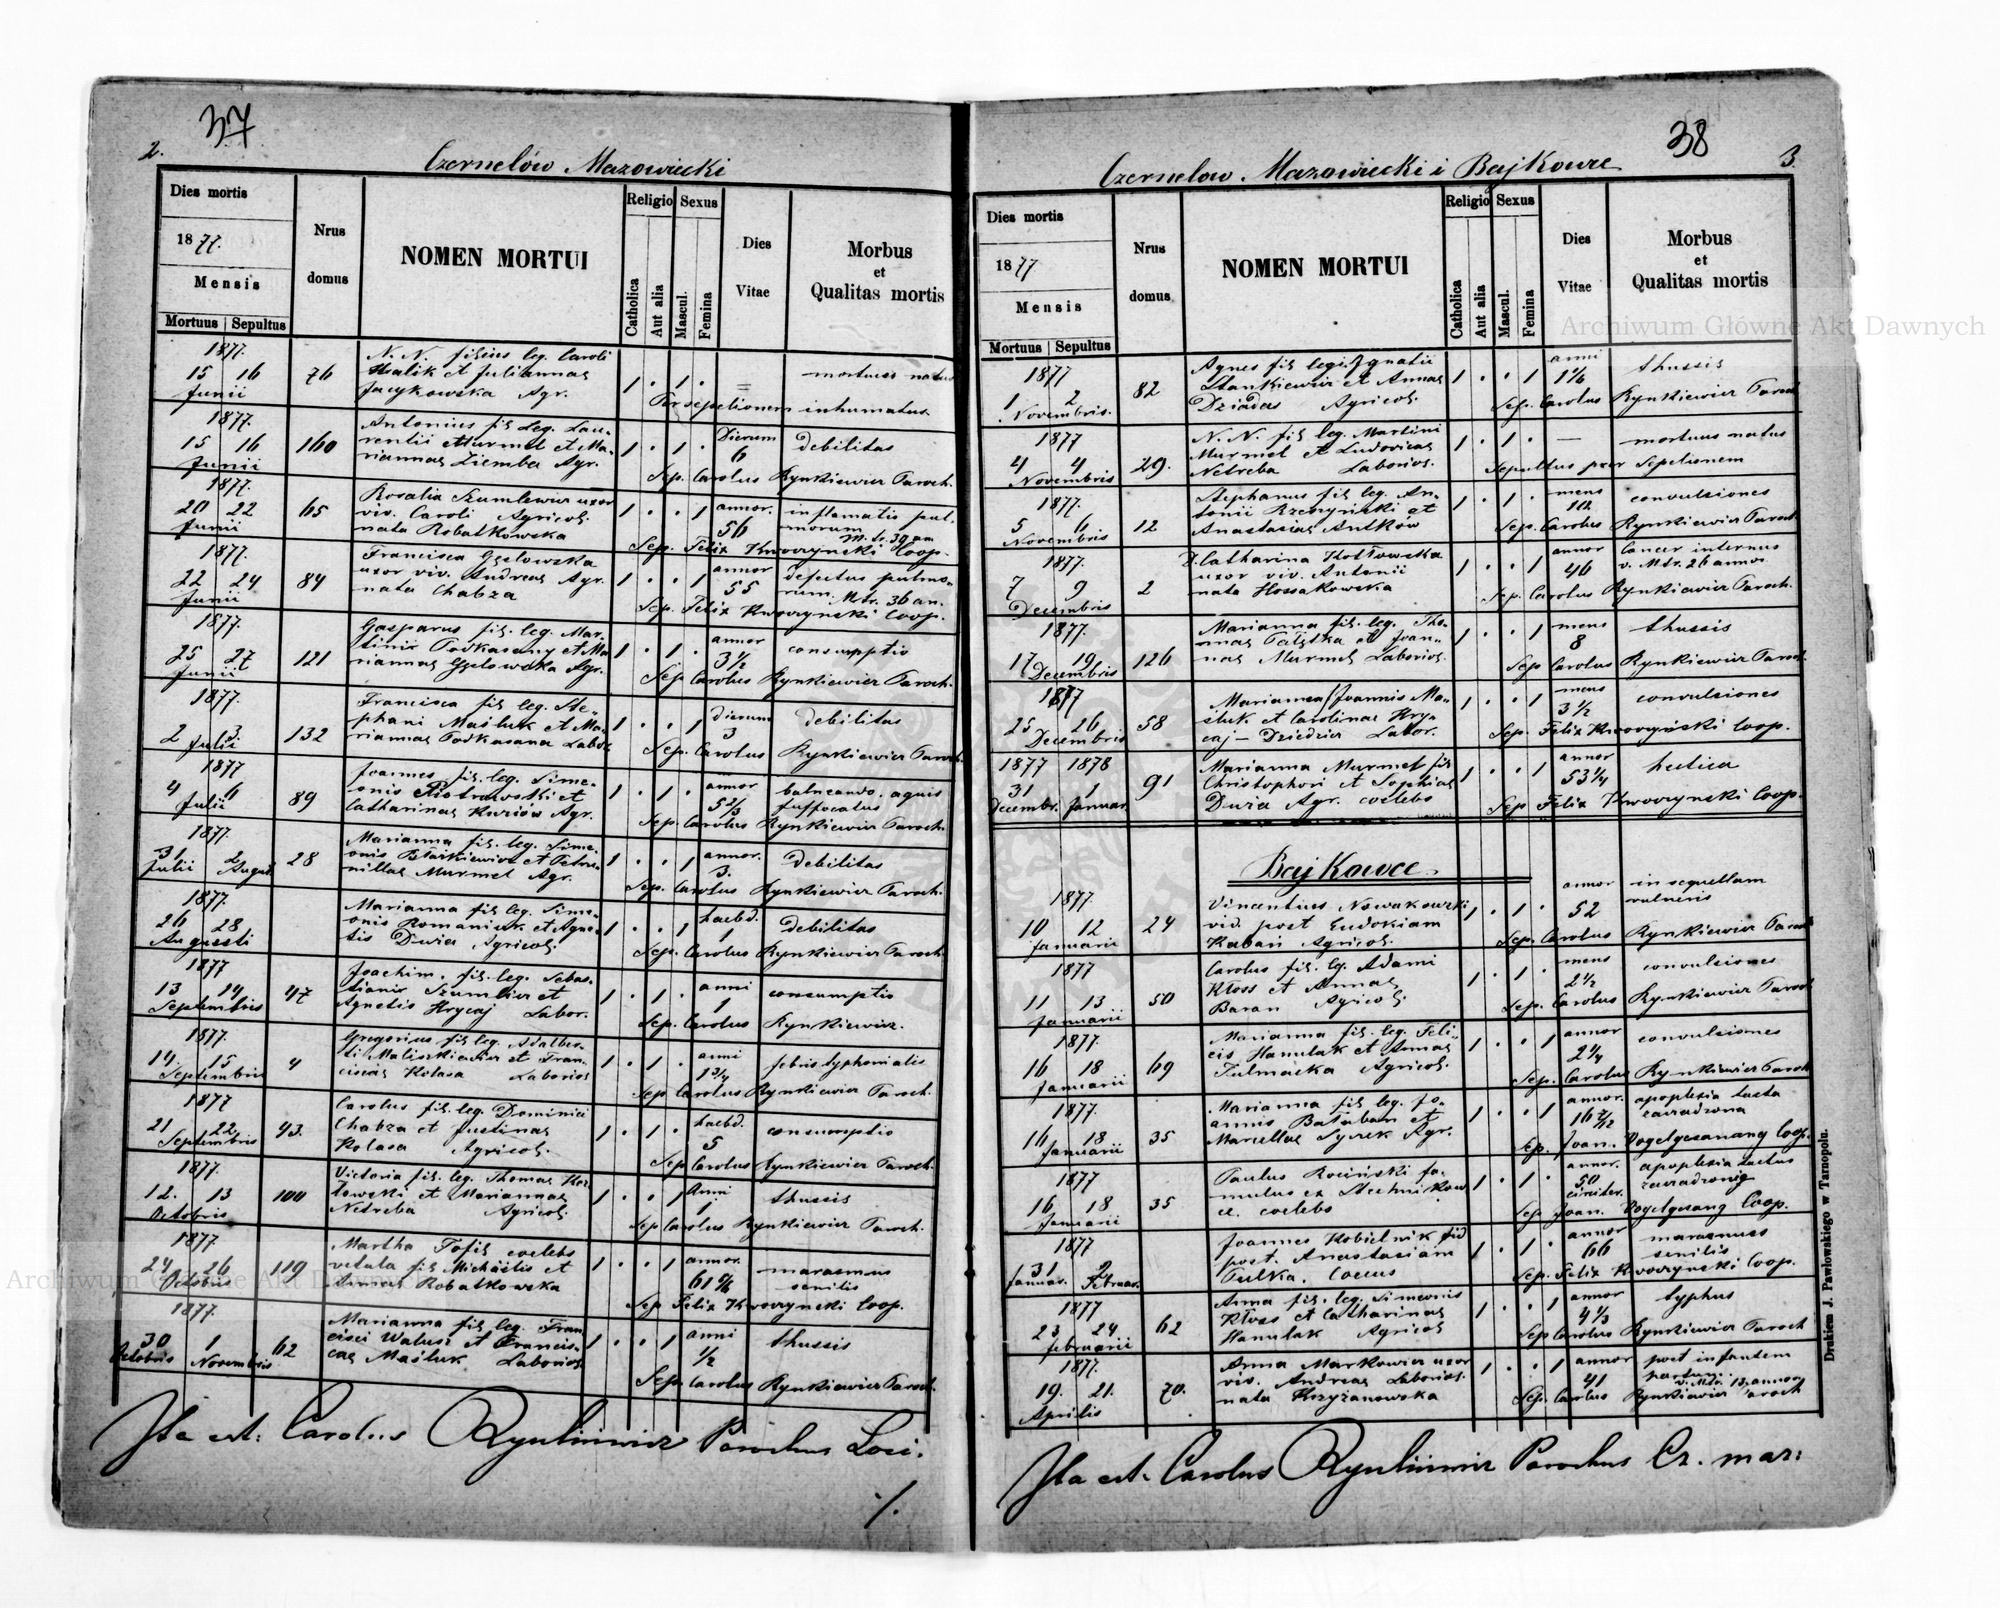 37
2.
Czernelów Mazowiecki
Dies mortis
1877.
Mensis
Mortuus | Sepultus
Nrus domus
NOMEN MORTUI
Religio
Catholica
Aut alia
Sexus
Mascul.
Femina
Dies Vitae
Morbus et Qualitas mortis
1877.
15 16 Junii
76
N. N. filius leg. Caroli
Halik et Juliannae
Jacykowska Agr.
1 . 1 .
mortuus natus
Per sepelionem inhumatus
1877.
15 16 Junii
160
Antonius fil. leg. Lau-
rentii Murmel et Ma-
riannae Ziemba Agr.
1 . 1 .
Dierum 6
debilitas
Sep. Carolus Rynkiewicz Paroch.
1877.
20 22 Junii
65
Rosalia Szumlewicz uxor
viv. Caroli Agricol.
nata Robatkowska
1 . . 1
annor. 56
inflamatio pul-
morum
M. tr. 39 an
Sep. Felix Kwoczynski Coop.
1877.
22 24 Junii
84
Francisca Gzelowska
uxor viv. Andreae Agr.
nata Chabza
1 . . 1
annor 55
defectus pulmo-
rum. Mtr. 36 an.
Sep. Felix Kwoczynski Coop.
1877.
25 27 Junii
121
Gasparus fil. leg. Mar-
tini Podkasany et Ma-
riannae Gzelowska Agr.
1 . 1 .
annor 3 1/2
consumptio
Sep. Carolus Rynkiewicz Paroch.
1877.
2 3 Julii
132
Francisca fil. leg. Ste-
phani Maśluk et Ma-
riannae Podkasana Labor.
1 . . 1
dierum 3
debilitas
Sep. Carolus Rynkiewicz Paroch.
1877
4 6 Julii
89
Joannes fil. leg. Sime-
onis Piotrowski et
Catharinae Kuziów Agr.
1 . 1 .
annor 5 2/3
balneando aquis
suffocatus
Sep. Carolus Rynkiewicz Paroch.
1877.
31 Julii 2 August.
28
Marianna fil. leg. Sime-
onis et Petro-
nillae Murmel Agr.
1 . . 1
annor. 3.
debilitas
Sep. Carolus Rynkiewicz Paroch.
1877.
26 28 Augusti
Marianna fil. leg. Sime-
onis Romaniuk et Agne-
tis Agricol.
1 . . 1
haebd. 1
debilitas
Sep. Carolus Rynkiewicz Paroch.
1877
13 14 Septembris
47
Joachim. fil. leg. Sebas-
tiani et
Agnetis Hrycaj Labor.
1 . 1 .
anni 1
consumptio
Sep. Carolus Rynkiewicz.
1877.
14. 15 Septembris
4
Gregorius fil. leg. Adalber-
ti Maliszkiewicz et Fran-
ciscae Kolasa Laborios.
1 . 1 .
anni 1 3/4
febris typhoidalis
Sep. Carolus Rynkiewicz Paroch.
1877
21 22 Septembris
43.
Carolus fil. leg. Dominici
Chabza et Justinae
Kolasa Agricol.
1 . 1 .
haebd. 5
consumptio
Sep. Carolus Rynkiewicz Paroch.
1877.
12. 13 Octobris
100
Victoria fil. leg. Thomae Koz-
łowski et Mariannae
Netreba Agricol.
1 . . 1
Anni 1
thussis
Sep. Carolus Rynkiewicz Paroch.
1877
24 26 Octobris
119
Martha Tofil coelebs
vetula fil. Michaëlis et
Annae Robatkowska
1 . . 1
annor.
marasmus
senilis
Sep. Felix Kwoczynski Coop.
1877.
30 Octobris 1 Novembris
62
Marianna fil. leg. Fran-
cisci Walusi et Francis-
cae Maśluk Laborios.
1 . . 1
anni 1/2
thussis
Sep. Carolus Rynkiewicz Paroch.
Ita est. Carolus Rynkiewicz Parochus Loci.
./.
38
3.
Czernelow. Mazowiecki i Bajkowce
Dies mortis
1877
Mensis
Mortuus | Sepultus
Nrus domus
NOMEN MORTUI
Religio
Catholica
Aut alia
Sexus
Mascul.
Femina
Dies Vitae
Morbus et Qualitas mortis
1877
1 2 Novembris.
82
Agnes fil. legi. Ignatii
Stankiewicz et Annae
Dziadas Agricol.
1 . . 1
anni 1 1/6
thussis
Sep. Carolus Rynkiewicz Paroch
1877
4 4 Novembris
29.
N. N. fil. leg. Martini
Murmel et Ludovicae
Netreba Laborios.
1 . 1 .
—
mortuus natus
Sepultus per Sepelionem
1877.
5 6 Novembris
12
Stephanus fil. leg. An-
tonii Rzeczyński et
Anastasiae Antków
1 . 1 .
mens 10
convulsiones
Sep. Carolus Rynkiewicz Paroch.
1877.
7 9 Decembris
2
D. Catharina Kotłowska
uxor viv. Antonii
nata Hossakowska
1 . . 1
annor 46
Cancer internus
v. Mtr. 26 annor.
Sep. Carolus Rynkiewicz Paroch.
1877.
17 19 Decembris
126
Marianna fil. leg. Tho-
mae Pałętka et Joan-
nae Murmel Laborios.
1 . . 1
mens 8
thussis
Sep. Carolus Rynkiewicz Paroch.
1877
25 26 Decembris
58
Marianna f. Joannis Ma-
śluk et Carolinae Hry-
caj - Dziedzic Labor.
1 . . 1
mens 3 1/2
convulsiones
Sep. Felix Kwoczyński Coop.
1877 1878
31 Decembr. 1 Januar.
91
Marianna Murmel fil.
Christophori et Sophiae
Duża Agr. coelebs
1 . . 1
annor 53 1/4
hectica
Sep. Felix Kwoczynski Coop.
Bajkowce.
1877.
10 12 Januarii
24
Vincentius Nowakowski
vid. post Eudokiam
Kabań Agricol.
1 . 1 .
annor 52
in sequellam
vulneris
Sep. Carolus Rynkiewicz Paroch
1877
11 13 Januarii
50
Carolus fil. lg. Adami
Kłoss et Annae
Baran Agricol.
1 . 1 .
mens 2 1/2
convulsiones
Sep. Carolus Rynkiewicz Paroch
1877.
16 18 Januarii
69
Marianna fil. leg. Feli-
cis Hanulak et Annae
Tulmacka Agricol.
1 . . 1
annor 2 1/4
convulsiones
Sep. Carolus Rynkiewicz Paroch
1877.
16 18 Januarii
35
Marianna fil. leg. Jo-
annis Bataban et
Marcellae Syrek Agr.
1 . . 1
annor. 16 7/12
apoplexia tacta
zaczadzona
Sep. Joan. Vogelgesanang Coop.
1877
16 18 Januarii
35
Paulus Rociński fa-
mulus ex Stechnikow
ce. coelebs
1 . 1 .
annor. 50 circiter.
apoplexia tactus
zaczadzony
Sep. Joan. Vogelgesang Coop.
1877
31 Januar. 2 Februar.
Joannes Kobielnik vid
post. Anastasiam
Pulka. Caecus
1 . 1 .
annor 66
marasmus
senilis
Sep. Felix Kwoczynski Coop.
1877
23 24 februarii
62
Anna fil. leg. Simeonis
Kłoss et Catharinae
Hanulak Agricol
1 . . 1
annor 4 1/3
typhus
Sep. Carolus Rynkiewicz Paroch
1877.
19 21. Aprilis
70.
Anna Markowicz uxor
viv. Andreae Laborios.
nata Krzyżanowska
1 . . 1
annor 41
post infantem
partum
v. Mtr. 13. annor
Sep. Carolus Rynkiewicz Paroch
Ita est. Carolus Rynkiewicz Parochus Cz. maz:
Drukiem J. Pawłowskiego w Tarnopolu.
Archiwum Główne Akt Dawnych
Archiwum Główne Akt Dawnych